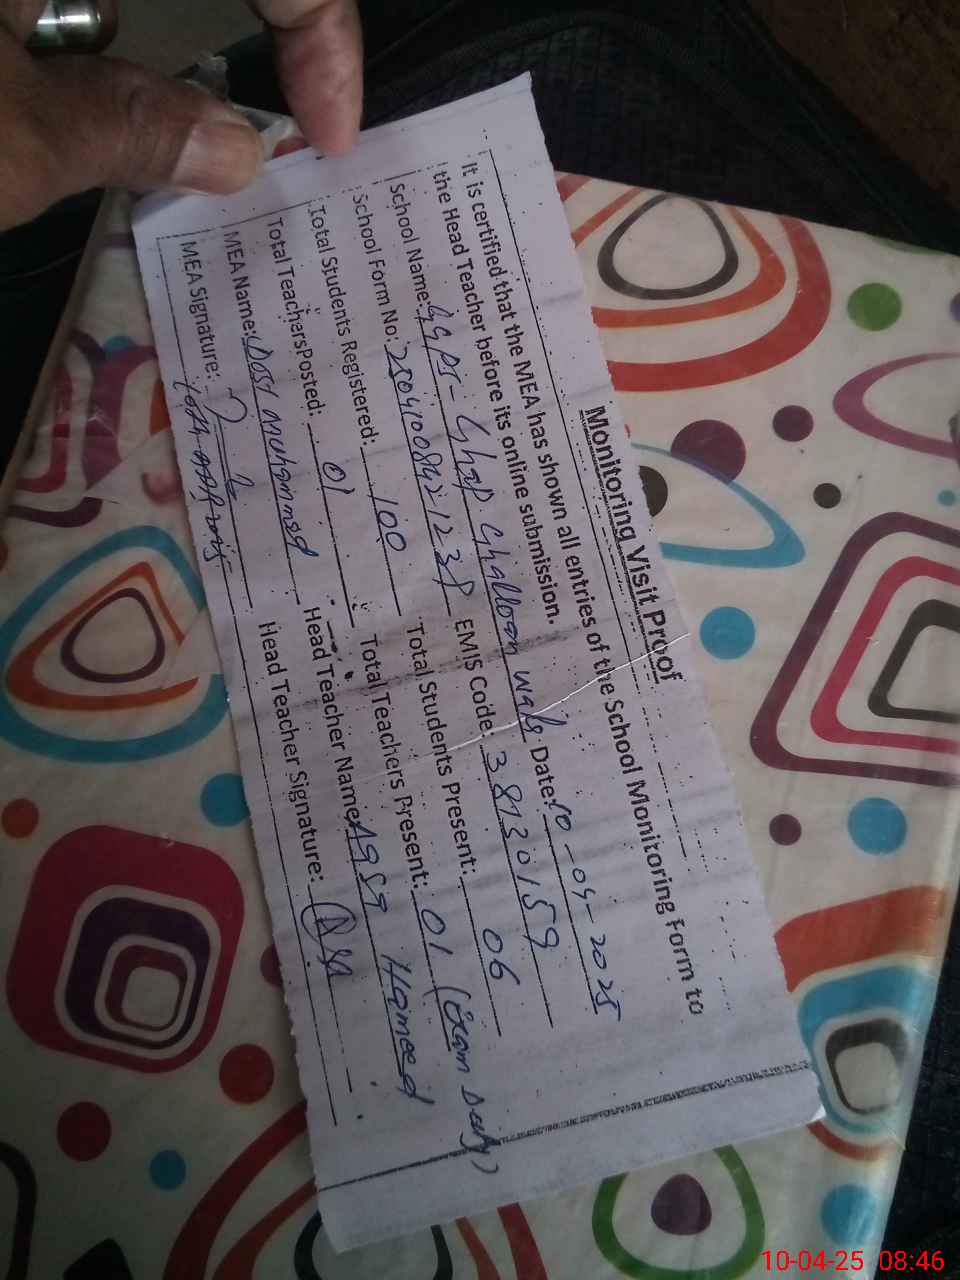 Monitoring Visit Proof
It is certified that the MEA has shown all entries of the School Monitoring Form to
the Head Teacher before its online submission.
School Name: GGPS - Chap Ghalloan wala Date: 10-04-2025
School Form No: EMIS Code: 38130159
Total Students Registered: 100 Total Students Present: 06
Total Teachers Posted: 01 Total Teachers Present: 01 (Exam Duty)
MEA Name: Dost Muhammad Head Teacher Name: Hameed
MEA Signature: Head Teacher Signature:
10-04-25 08:46